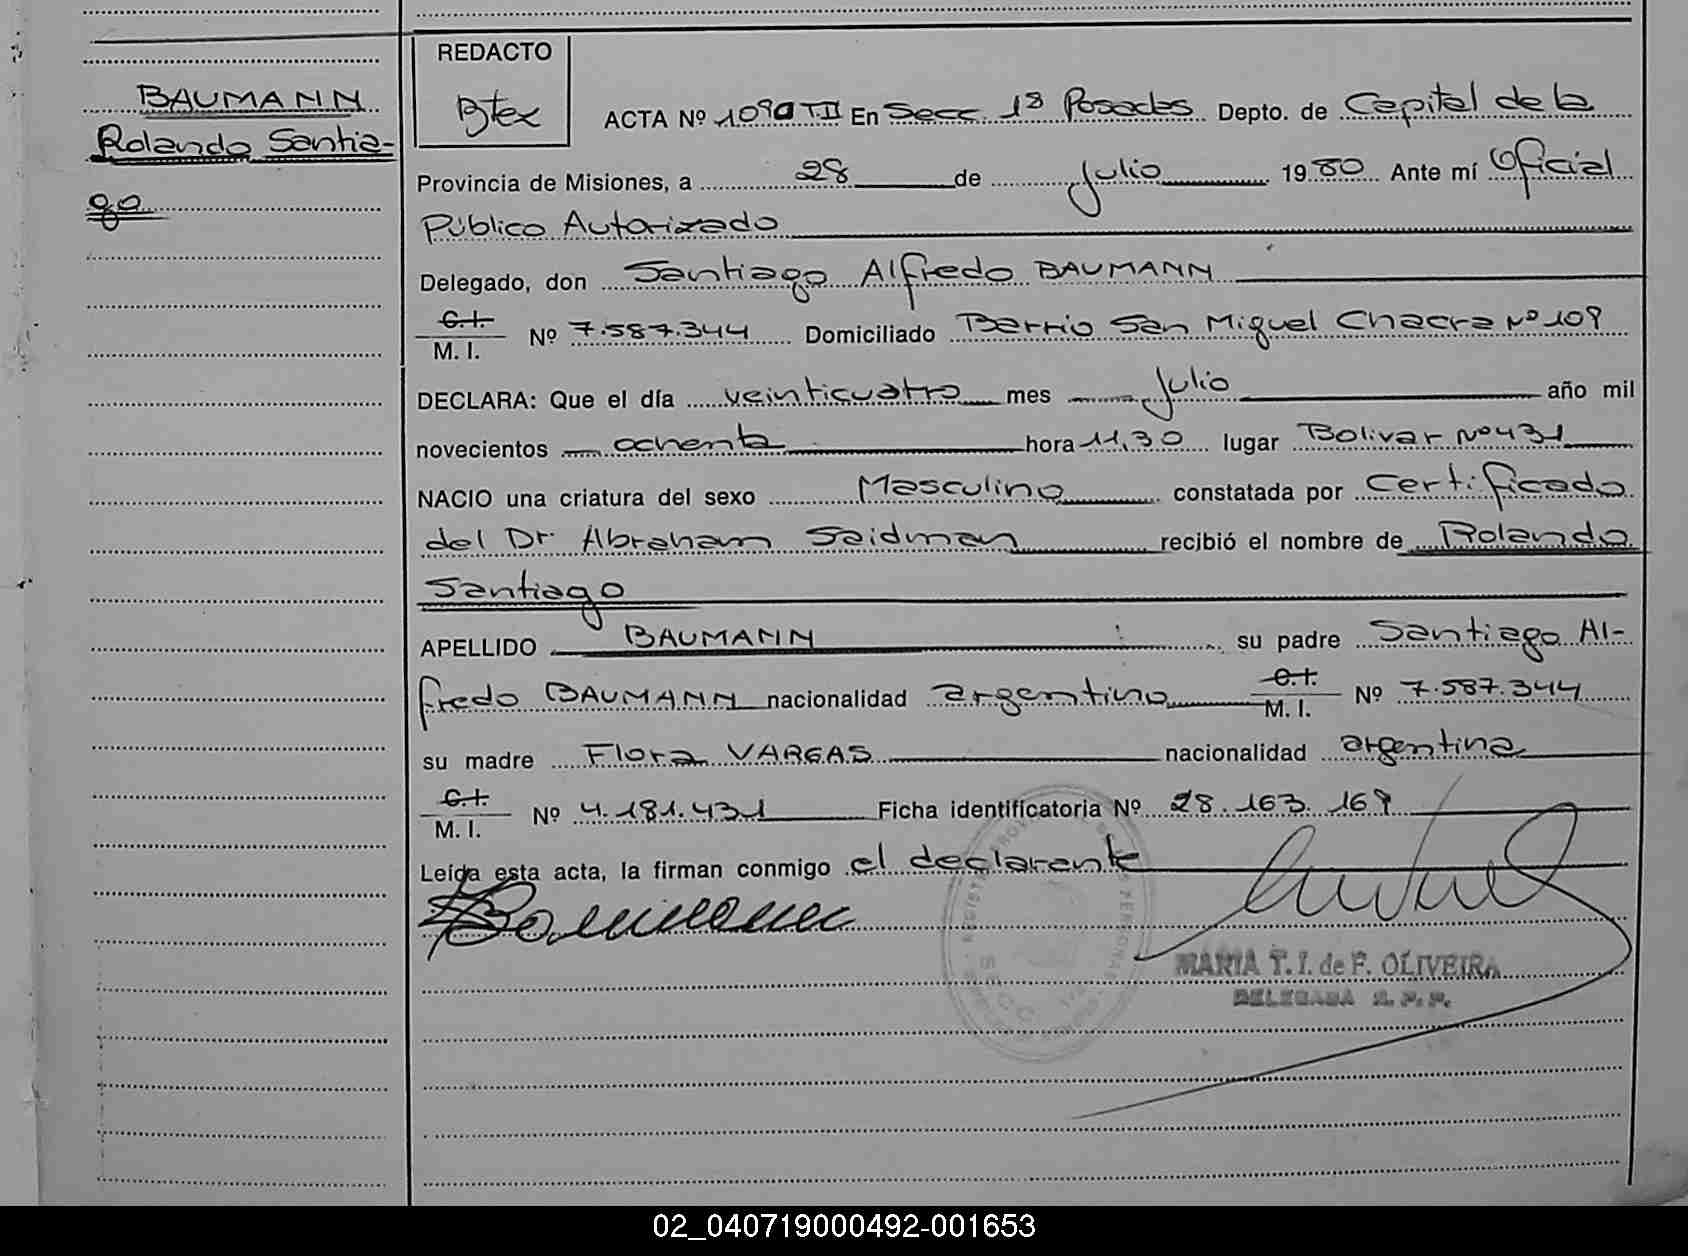 BAUMANN
Rolando Santia-
go
REDACTO
Btex
ACTA Nº 1090 T.II En Secc. 1ª Posadas Depto. de Capital de la
Provincia de Misiones, a 28 de Julio 1980 Ante mí Oficial
Público Autorizado
Delegado, don Santiago Alfredo BAUMANN
C.I.
M. I. Nº 7.587.344 Domiciliado Barrio San Miguel Chacra Nº 109
DECLARA: Que el día veinticuatro mes Julio año mil
novecientos ochenta hora 11,30 lugar Bolivar Nº 431
NACIO una criatura del sexo Masculino constatada por Certificado
del Dr. Abraham Saidman recibió el nombre de Rolando
Santiago
APELLIDO BAUMANN su padre Santiago Al-
fredo BAUMANN nacionalidad argentino C.I. M. I. Nº 7.587.344
su madre Flora VARGAS nacionalidad argentina
C.I.
M. I. Nº 4.181.431 Ficha identificatoria Nº 28.163.169
Leída esta acta, la firman conmigo el declarante
MARIA T. I. de F. OLIVEIRA
DELEGADA R. P. P.
02_040719000492-001653